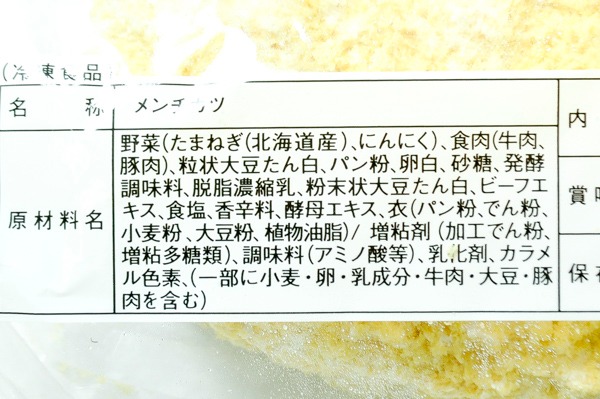 (冷凍食品)
名称 メンチカツ
原材料名
野菜(たまねぎ(北海道産)、にんにく)、食肉(牛肉、
豚肉)、粒状大豆たん白、パン粉、卵白、砂糖、発酵
調味料、脱脂濃縮乳、粉末状大豆たん白、ビーフエ
キス、食塩、香辛料、酵母エキス、衣(パン粉、でん粉、
小麦粉、大豆粉、植物油脂)/ 増粘剤(加工でん粉、
増粘多糖類)、調味料(アミノ酸等)、乳化剤、カラメ
ル色素、(一部に小麦・卵・乳成分・牛肉・大豆・豚
肉を含む)
内
賞
保